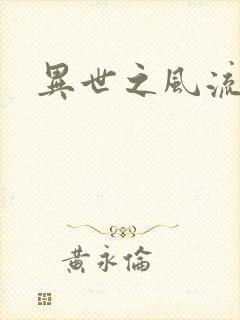 異世之風流
黃永倫